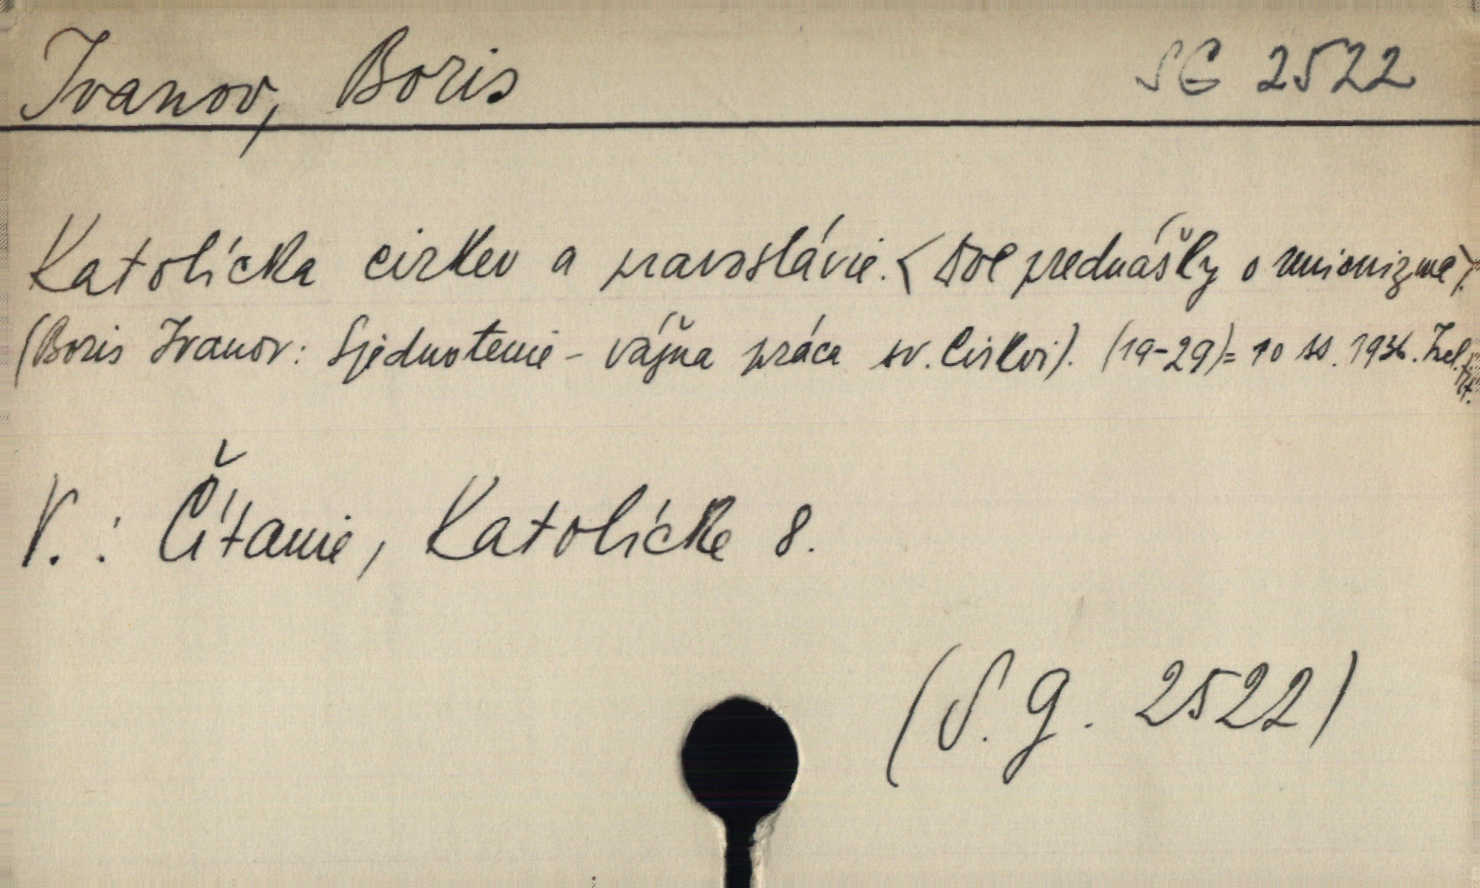 Ivanov, Boris SG 2522
Katolícka cirkev a pravoslávie. <Dve prednášky o unionizme>.
(Boris Ivanov: Sjednotenie - vážna práca sv. Cirkvi). (19-29)= 10 ss. 1936.
V.: Čítanie, Katolícke 8.
(S. g. 2522)